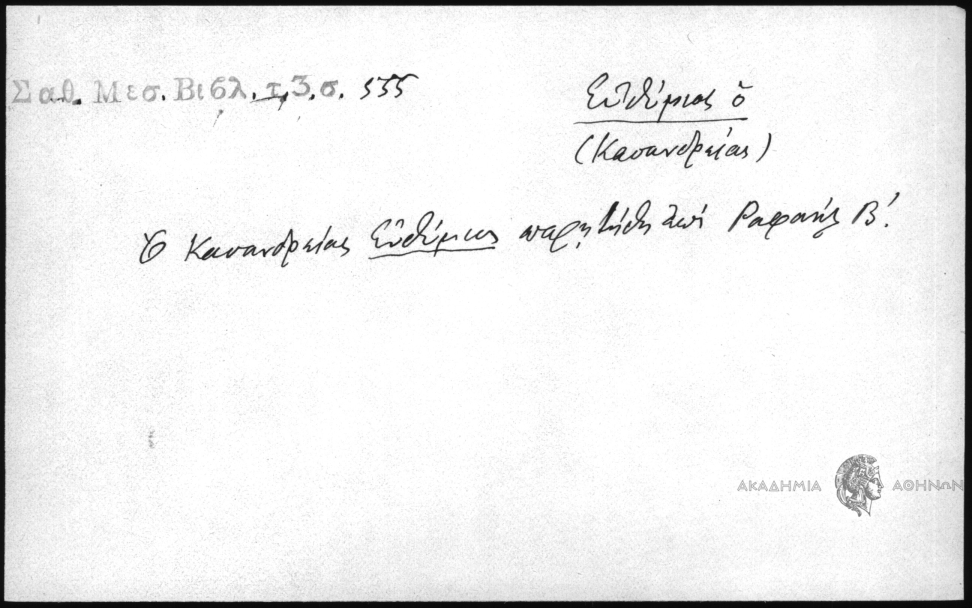 Σαθ. Μεσ. Βιβλ. τ. 3. σ. 555
Εὐθύμιος ὁ
(Κασανδρείας)
Ὁ Κασανδρείας Εὐθύμιος παρῃτήθη ἐπὶ Β΄.
ΑΚΑΔΗΜΙΑ ΑΘΗΝΩΝ